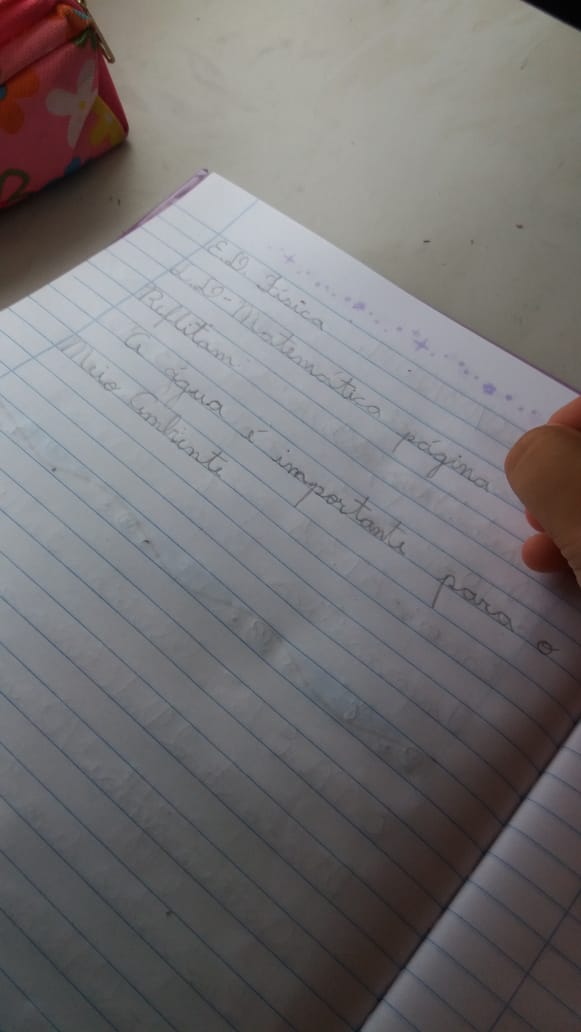 E.D. Física
L.D-Matemática página
Reflitam
A água é importante para o
Meio Ambiente